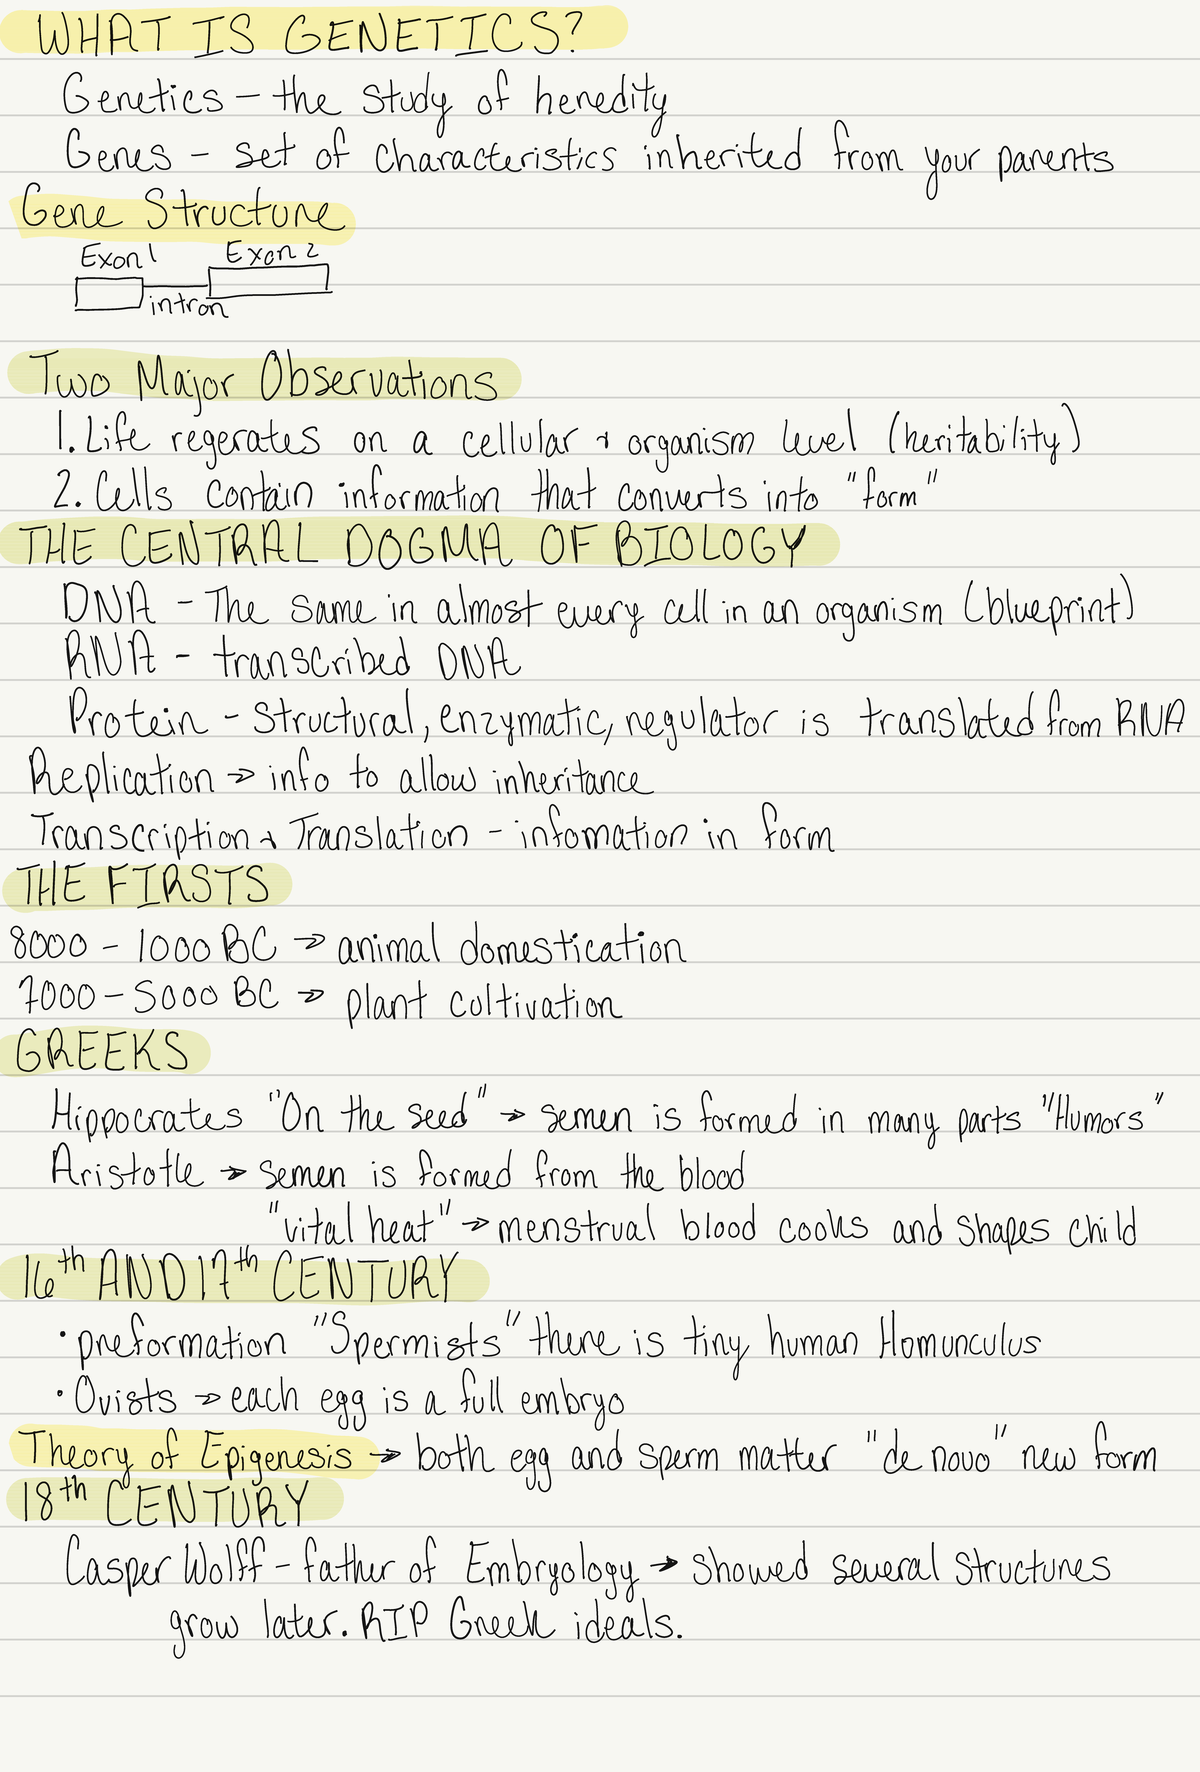 WHAT IS GENETICS?
Genetics – the study of heredity
Genes – set of characteristics inherited from your parents
Gene Structure
Exon 1 Exon 2
intron
Two Major Observations
1. Life regerates on a cellular & organism level (heritability)
2. Cells contain information that converts into "form"
THE CENTRAL DOGMA OF BIOLOGY
DNA – The same in almost every cell in an organism (blueprint)
RNA – transcribed DNA
Protein – structural, enzymatic, regulator is translated from RNA
Replication → info to allow inheritance
Transcription & Translation – infomation in form
THE FIRSTS
8000 – 1000 BC → animal domestication
7000 – 5000 BC → plant cultivation
GREEKS
Hippocrates "On the seed" → semen is formed in many parts "Humors"
Aristotle → semen is formed from the blood
"vital heat" → menstrual blood cooks and shapes child
16th AND 17th CENTURY
• preformation "Spermists" there is tiny human Homunculus
• Ovists → each egg is a full embryo
Theory of Epigenesis → both egg and sperm matter "de novo" new form
18th CENTURY
Casper Wolff – father of Embryology → showed several structures
grow later. RIP Greek ideals.